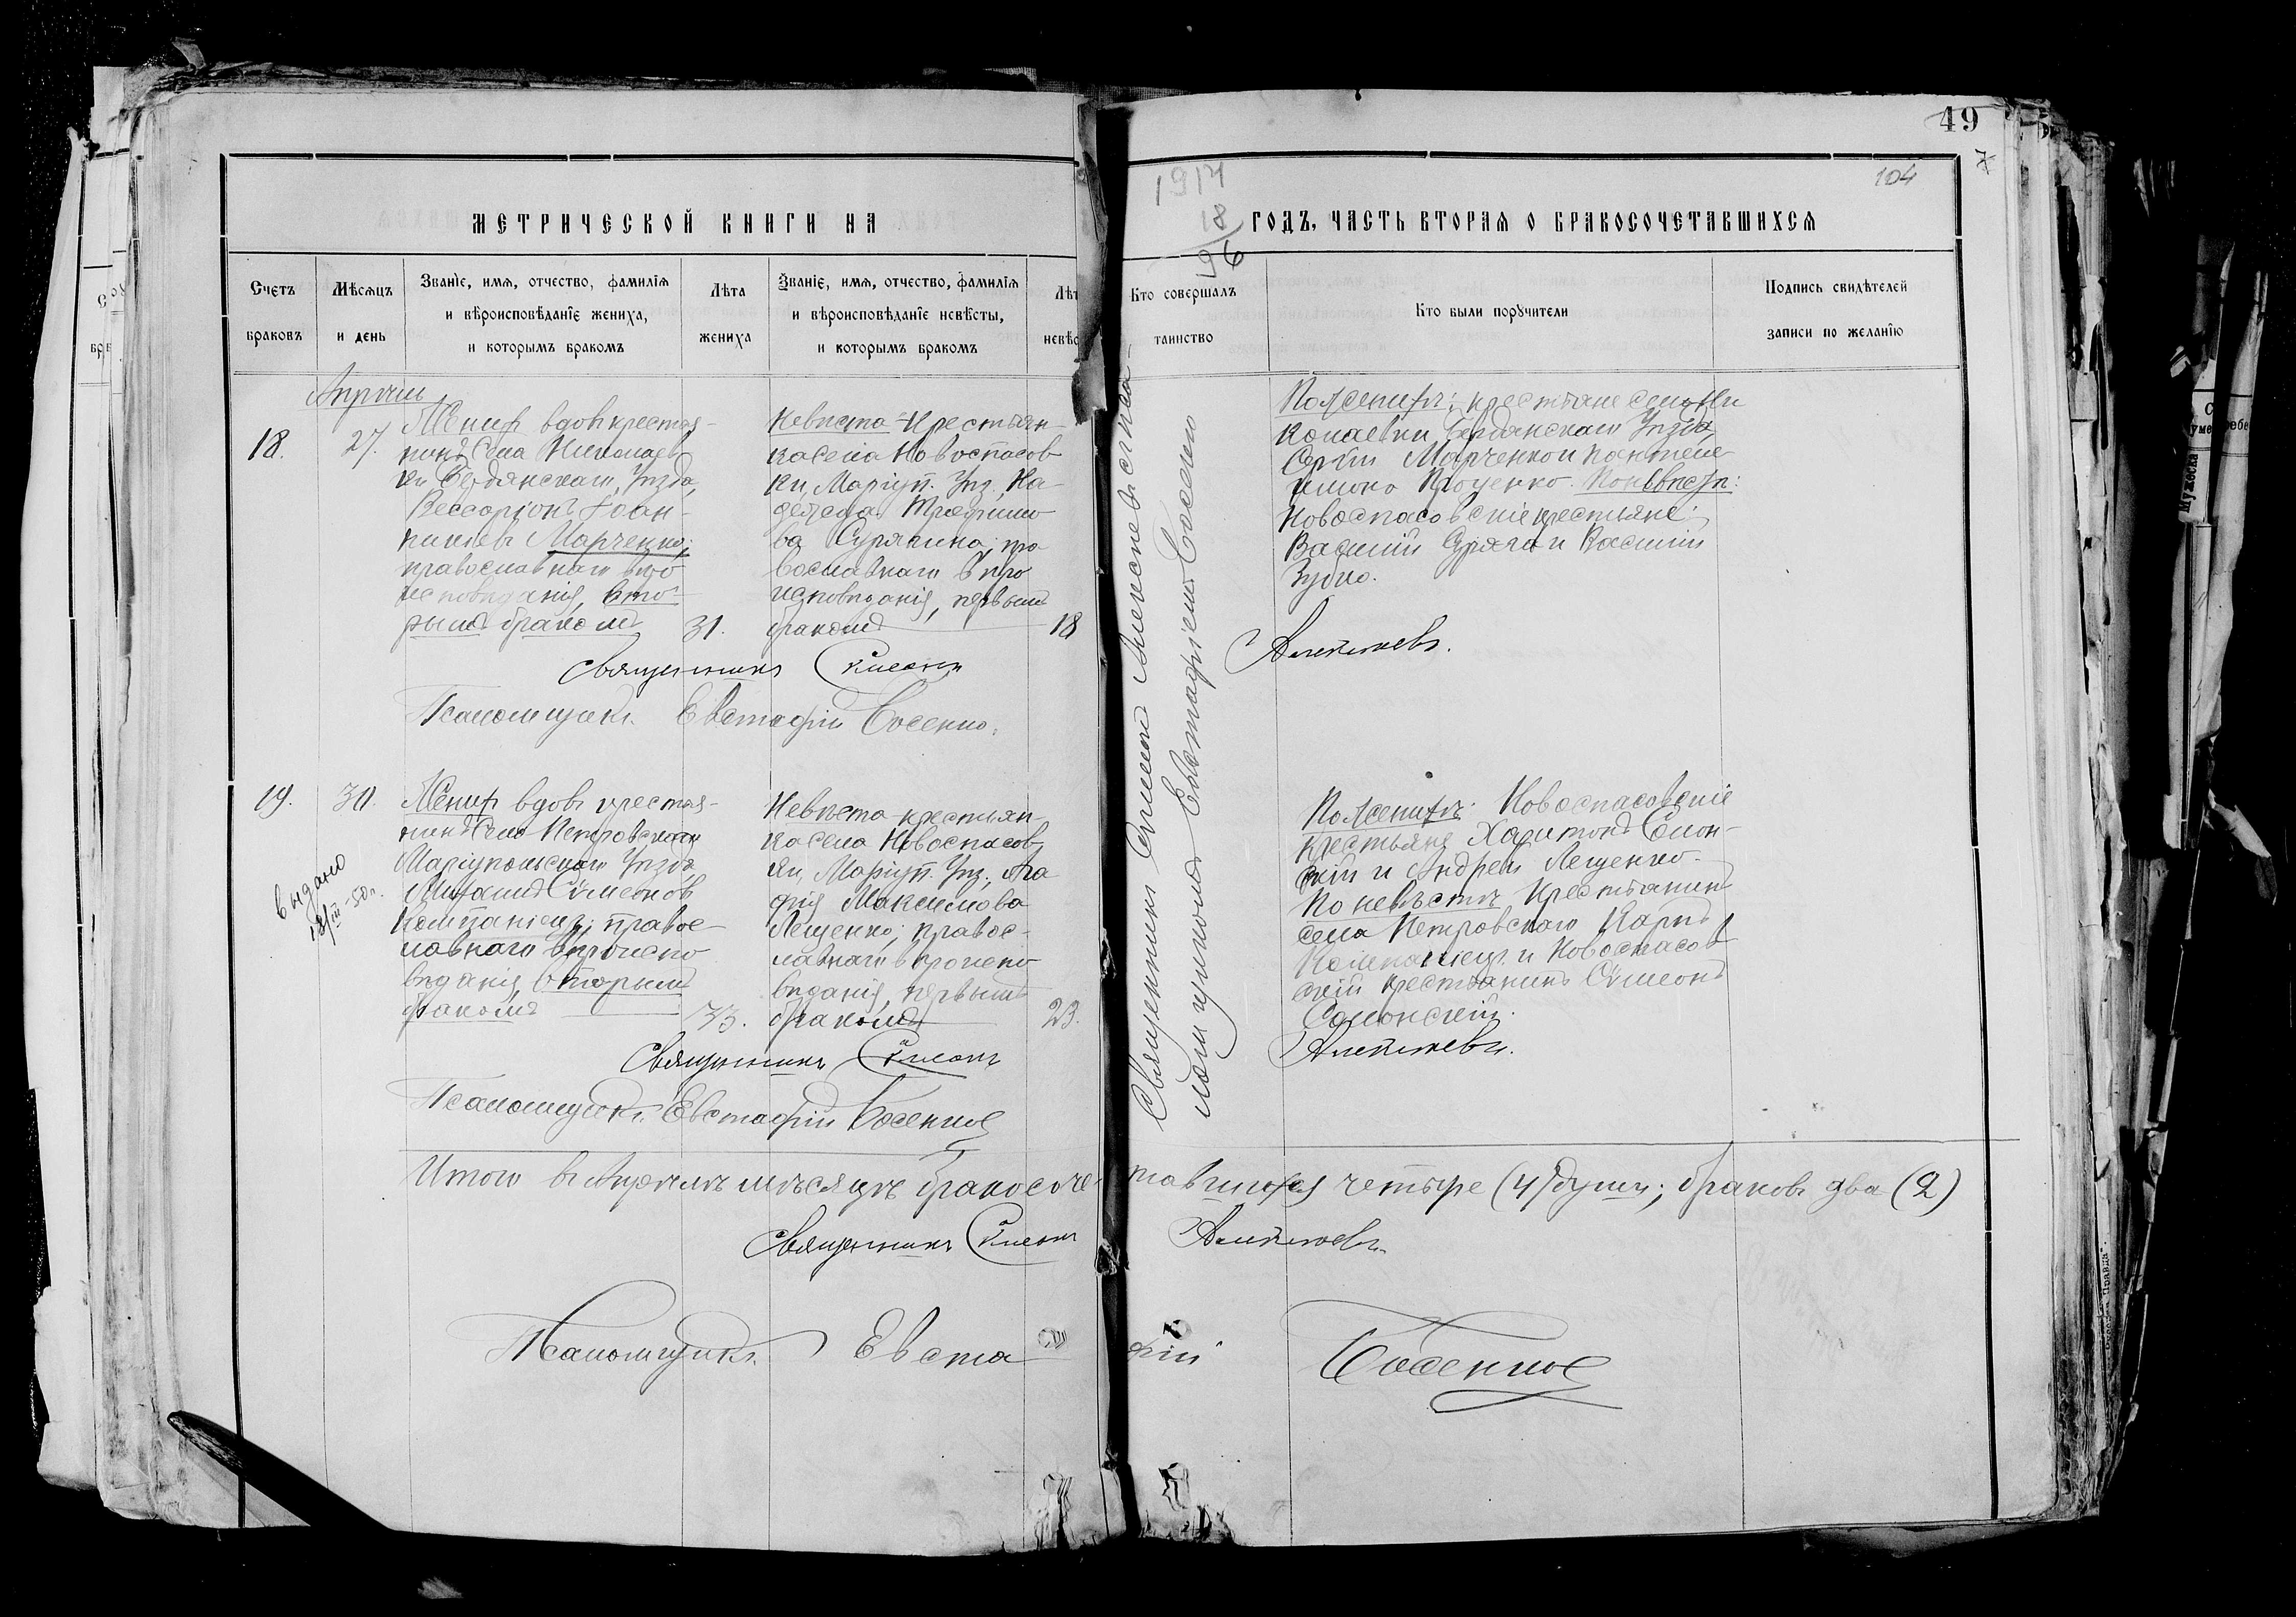 49
104
1914
18
96
МЕТРИЧЕСКОЙ КНИГИ НА
ГОДЪ, ЧАСТЬ ВТОРАЯ О БРАКОСОЧЕТАВШИХСЯ
Счетъ браковъ
Мѣсяцъ и день
Званіе, имя, отчество, фамилія
и вѣроисповѣданіе жениха,
и которымъ бракомъ
Лѣта жениха
Званіе, имя, отчество, фамилія
и вѣроисповѣданіе невѣсты,
и которымъ бракомъ
Лѣт
невѣс
Кто совершалъ
таинство
Кто были поручители
Подпись свидѣтелей
записи по желанію
Апрѣль
18.
27.
Женихъ вдовъ крестья-
нинъ села Николаев
ки Бердянскаго Уѣзда,
Вессаріонъ Іоан-
никіевъ Марченко;
православнаго вѣро
исповѣданія, вто-
рымъ бракомъ
31.
Невѣста крестьян-
ка села Новоспасов
ки, Маріуп. Уѣз., На
дежда Трофимо
ва Сурякина; пра
вославнаго вѣро
исповѣданія, первымъ
бракомъ
18
Священникъ Сѵмеонъ
Алексѣевъ.
Псаломщикъ Евстафій Косенко.
Священникъ Сѵмеонъ
псаломщикомъ Евстафіемъ Косенко
По женихѣ: крестьяне села Ни
колаевки Бердянскаго Уѣзда,
Сергій Марченко и Пантеле
имонъ Проценко. По невѣстѣ:
Новоспасовскіе крестьяне:
Василій Суряга и Василій
Зубко.
19.
30.
выдано
Женихъ вдовъ крестья-
нинъ села Петровскаго
Маріупольскаго Уѣзда,
Михаилъ Сѵмеонов
Компаніецъ; правос-
лавнаго вѣроиспо
вѣданія, вторымъ
бракомъ
33.
Невѣста крестьян-
ка села Новоспасов
ки, Маріуп. Уѣз., Ага
фія Максимова
Лещенко; правос-
лавнаго вѣроиспо
вѣданія, первымъ
бракомъ
23.
Священникъ Сѵмеонъ
Алексѣевъ.
Псаломщикъ Евстафій Косенко
По женихѣ: Новоспасовскіе
крестьяне Харитонъ Самон-
скій и Андрей Лещенко.
По невѣстѣ крестьянинъ
села Петровскаго Карпъ
Компаніецъ и Новоспасов
скій крестьянинъ Сѵмеонъ
Самонскій.
Итого въ Апрѣлѣ мѣсяцѣ бракосоче-
тавшихся четыре (4) души; браковъ два (2)
Священникъ Сѵмеонъ
Алексѣевъ.
Псаломщикъ Евстафій Косенко